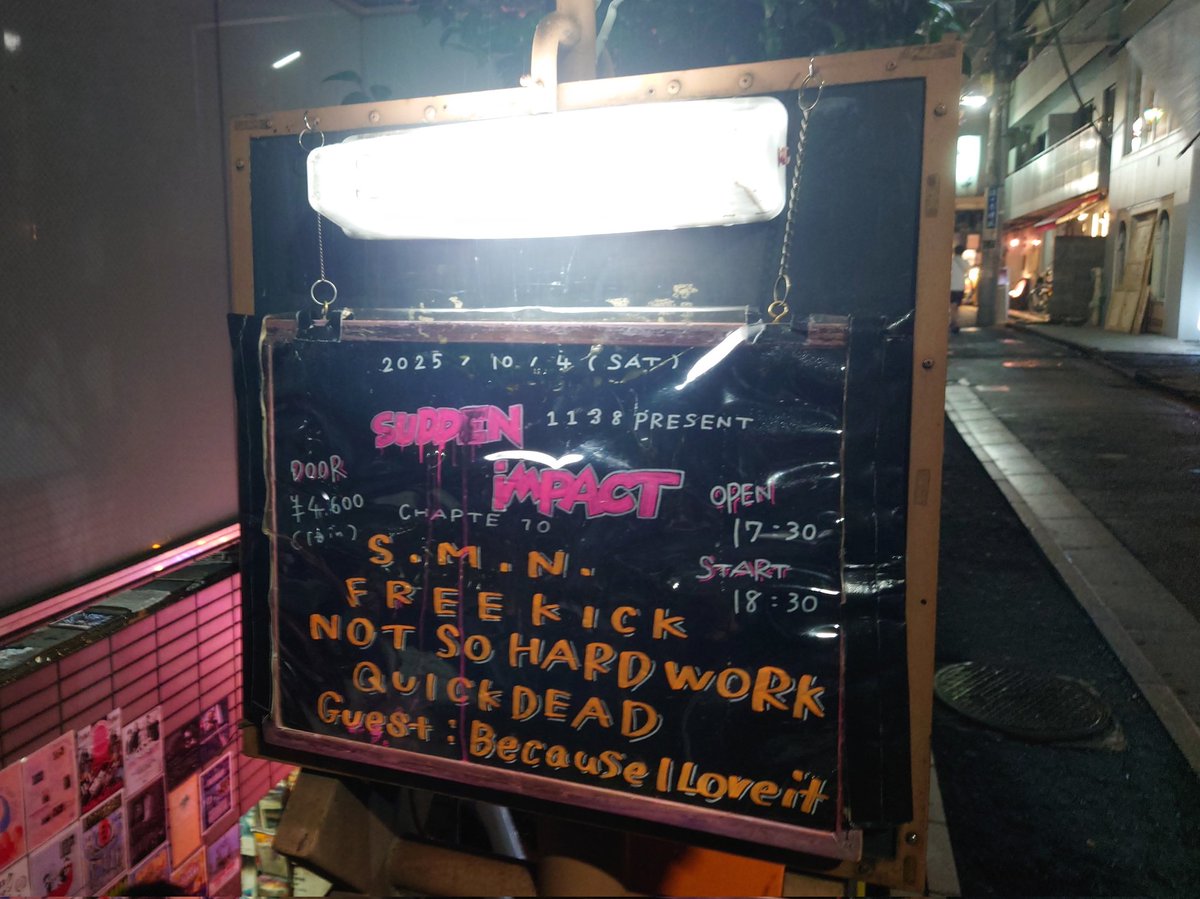 2025, 10, 4 (SAT)
SUDDEN 1138 PRESENT
IMPACT
CHAPTE 70
DOOR
¥4.600
OPEN
17:30
START
18:30
S.M.N.
FREE KICK
NOT SO HARD WORK
QUICKDEAD
Guest: Because I Love it